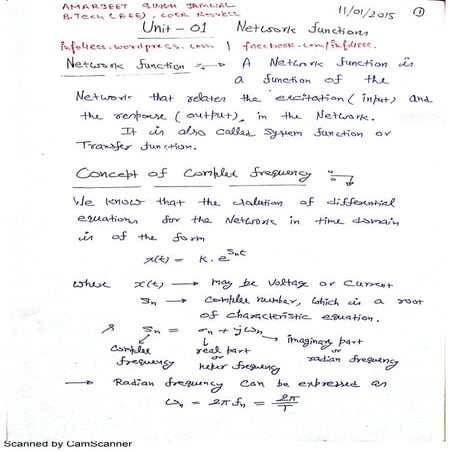 AMARJEET SINGH JAMWAL
B.Tech (EEE), COER Roorkee 11/01/2015 1
Unit - 01 Network functions
info4eee.wordpress.com | facebook.com/info4eee
Network function :→ A Network function is
a function of the
Network that relates the excitation (input) and
the response (output), in the Network.
It is also called System function or
Transfer function.
Concept of Complex frequency :→
We know that the solution of differential
equations for the Network in time domain
is of the form
x(t) = K.e^{Snt}
where x(t) → may be Voltage or Current
Sn → Complex number, which is a root
of characteristic equation.
& Sn = σn + jωn
Complex frequency real part or neper frequency imaginary part or radian frequency
→ Radian frequency can be expressed as
ωn = 2πfn = 2π/T
Scanned by CamScanner